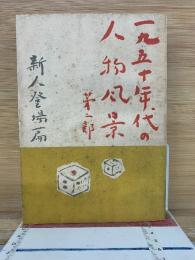 一九五十年代の
人物風景
第二部
新人登場篇